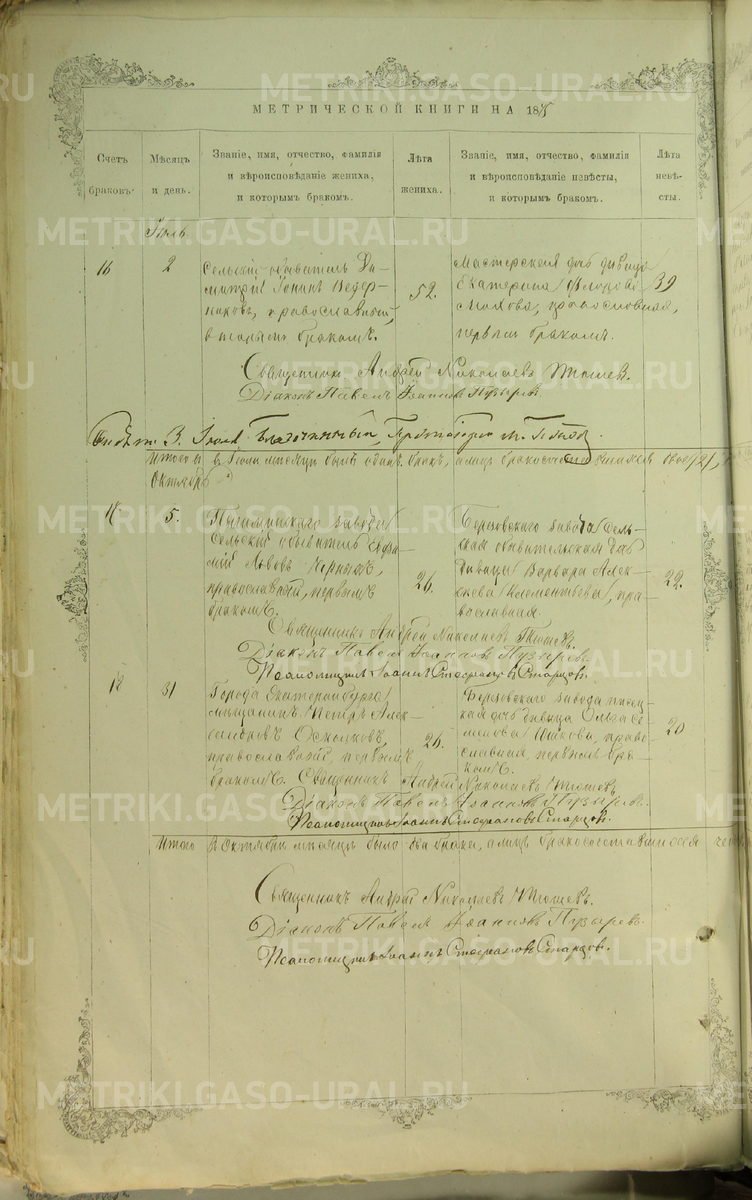 МЕТРИЧЕСКОЙ КНИГИ НА 18
Счетъ браковъ.
Мѣсяцъ и день.
Званіе, имя, отчество, фамилія
и вѣроисповѣданіе жениха,
и которымъ бракомъ.
Лѣта жениха.
Званіе, имя, отчество, фамилія
и вѣроисповѣданіе невѣсты,
и которымъ бракомъ.
Лѣта невѣ-
сты.
Іюль
16
2
Сельскій обыватель Ди-
митрій Іонинъ Ведер-
никовъ, православный,
вторымъ бракомъ.
52.
Мастерская дочь дѣвица
Екатерина
православная,
первымъ бракомъ.
39
Священникъ Андрей Николаевъ Тюшевъ.
Діаконъ Павелъ Іоанновъ Пузыревъ.
3. Іюля Благочинный, Протоіерей
Итого въ Іюлѣ мѣсяцѣ былъ одинъ бракъ, а лицъ бракосочетавшихся двое /2/
Октябрь
5.
Пышминскаго завода
сельскій обыватель
Львовъ Черныхъ,
православный, первымъ
бракомъ.
26.
Березовскаго завода сель-
ская обывательская дочь
дѣвица Варвара Алек-
сѣева Клементьева, пра-
вославная.
22.
Священникъ Андрей Николаевъ Тюшевъ.
Діаконъ Павелъ Іоанновъ Пузыревъ.
Псаломщикъ Іоаннъ Стефановъ Старцовъ.
18
31
Города Екатеринбурга
мѣщанинъ Петръ Алек-
сандровъ Осколковъ,
православный, первымъ
бракомъ.
26.
Березовскаго завода
дочь дѣвица Ольга Се-
менова право-
славная, первымъ бра-
комъ.
20
Священникъ Андрей Николаевъ Тюшевъ
Діаконъ Павелъ Іоанновъ Пузыревъ.
Псаломщикъ Іоаннъ Стефановъ Старцовъ.
Итого въ Октябрѣ мѣсяцѣ было два брака, а лицъ бракосочетавшихся
Священникъ Андрей Николаевъ Тюшевъ.
Діаконъ Павелъ Іоанновъ Пузыревъ.
Псаломщикъ Іоаннъ Стефановъ Старцовъ.
METRIKI.GASO-URAL.RU